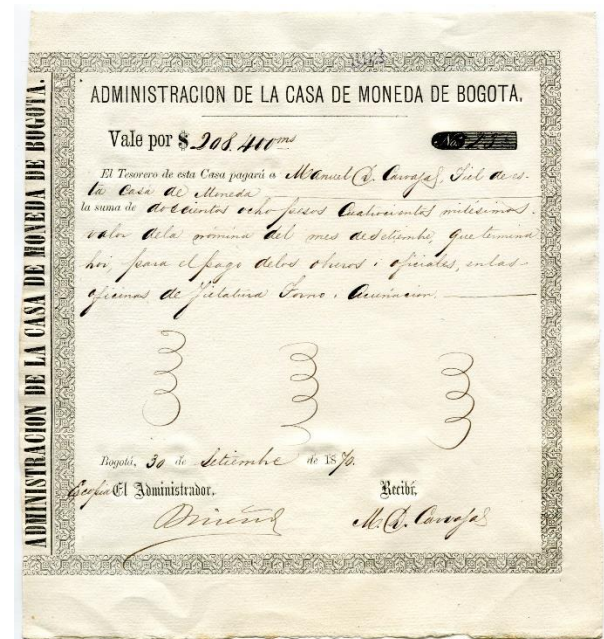 ADMINISTRACION DE LA CASA DE MONEDA DE BOGOTA.
ADMINISTRACION DE LA CASA DE MONEDA DE BOGOTA.
Vale por $ 208,400ms No. 23
El Tesorero de esta Casa pagará a Manuel D. Carvajal, Fiel de es-
ta Casa de Moneda
la suma de doscientos ocho pesos cuatrocientos milésimos.
valor de la nómina del mes de Setiembre, que termina
hoi, para el pago de los obreros i oficiales, en las
oficinas de Fielatura Torno i Acuñacion.
Bogotá, 30 de Setiembre de 1870.
Es copia El Administrador, Recibí,
M. D. Carvajal